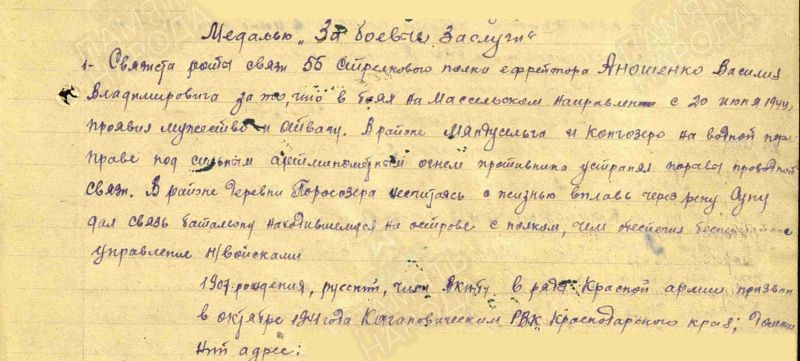 Медалью „За боевые заслуги"
1- Связиста роты связи 55 стрелкового полка ефрейтора Аношенко Василия
Владимировича за то, что в боях на Массельском направлении с 20 июня 1944,
проявил мужество и отвагу. В районе Мяндусельга и Конгозеро на водной пере-
праве под сильным арт.минометным огнем противника устранял порывы проводной
связи. В районе деревни Поросозера несчитаясь с жизнью вплавь через реку Суну
дал связь батальону находившемуся на острове с полком, чем обеспечил бесперебойное
управление н/войсками
рождения, русский, член ВКП/б/, в ряды Красной армии призван
в октябре 1941 года Кагановическим РВК Краснодарского края; Домаш
ний адрес: